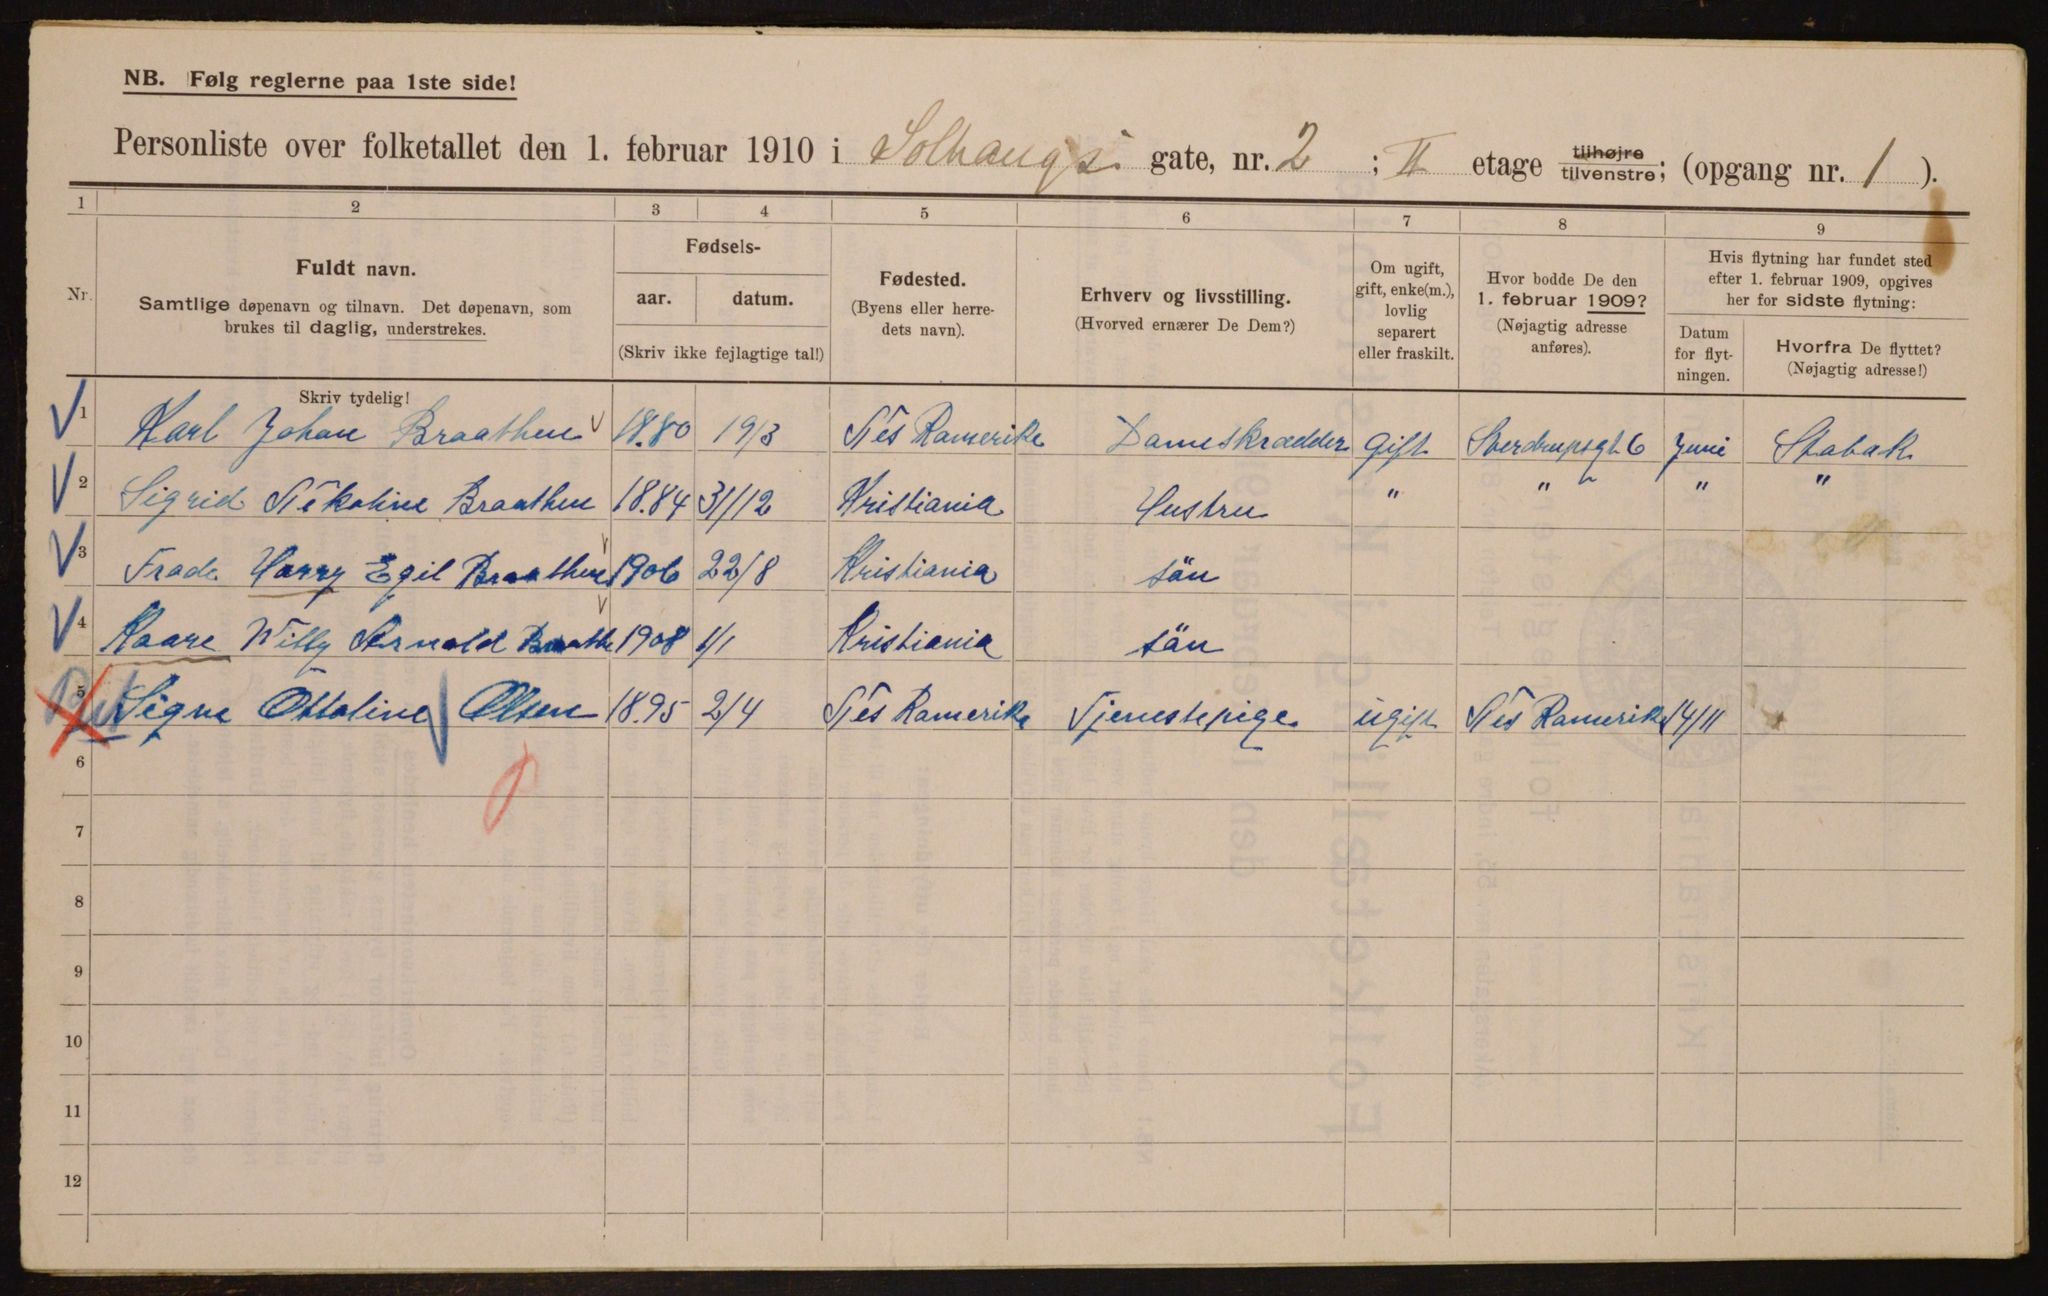 NB. Følg reglerne paa 1ste side!
Personliste over folketallet den 1. februar 1910 i Solhaugs gate, nr. 2 ; II etage tilhøjre tilvenstre; (opgang nr. 1 ).
1 2 3 4 5 6 7 8 9
Nr.
Fuldt navn.
Samtlige døpenavn og tilnavn. Det døpenavn, som
brukes til daglig, understrekes.
Skriv tydelig!
Fødsels-
aar. datum.
(Skriv ikke fejlagtige tal!)
Fødested.
(Byens eller herre-
dets navn).
Erhverv og livsstilling.
(Hvorved ernærer De Dem?)
Om ugift,
gift, enke(m.),
lovlig
separert
eller fraskilt.
Hvor bodde De den
1. februar 1909?
(Nøjagtig adresse
anføres).
Hvis flytning har fundet sted
efter 1. februar 1909, opgives
her for sidste flytning:
Datum
for flyt-
ningen.
Hvorfra De flyttet?
(Nøjagtig adresse!)
1 Karl Johan Braathen 18.80 19/3 Nes Ramerike Dameskrædder Gift Sverdrupsgt 6 Juni Stabak
2 Sigrid Nekoline Braathen 18.84 31/12 Kristiania Hustru " " " "
3 Frade Harry Egil Braathen 1906 22/8 Kristiania sän
4 Kaare Willy Arnold Braathe 1908 1/1 Kristiania sän
5 Signe Ottoline Olsen 18.95 2/4 Nes Ramerike Tjenestepige ugift Nes Ramerike 14/11
6
7
8
9
10
11
12